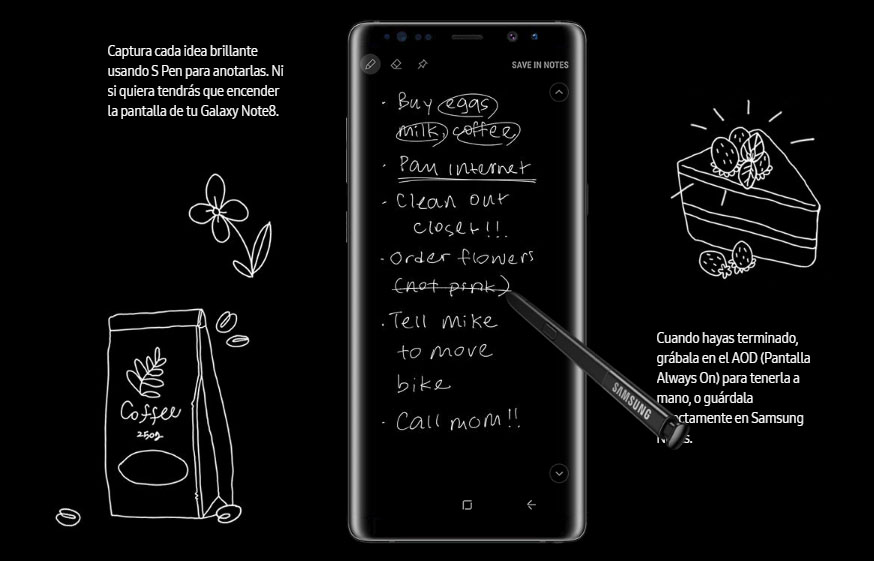 Captura cada idea brillante
usando S Pen para anotarlas. Ni
si quiera tendrás que encender
la pantalla de tu Galaxy Note8.
SAVE IN NOTES
· Buy eggs
milk, coffee,
· Pay internet
· Clean out
closet!!!
· Order flowers
(not pink)
· Tell mike
to move
bike
· Call mom!!
SAMSUNG
Coffee
250g
Cuando hayas terminado,
grábala en el AOD (Pantalla
Always On) para tenerla a
mano, o guárdala
en Samsung